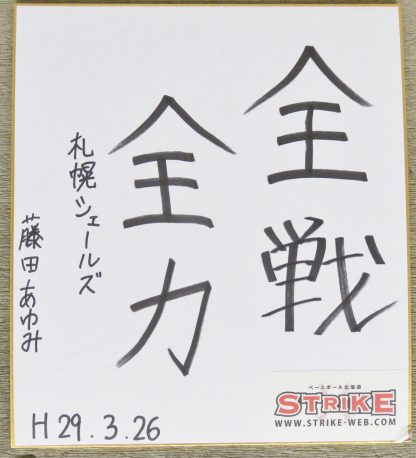 全戦
全力
札幌シェールズ
藤田あゆみ
H29.3.26
ベースボール北海道
STRIKE
WWW.STRIKE-WEB.COM